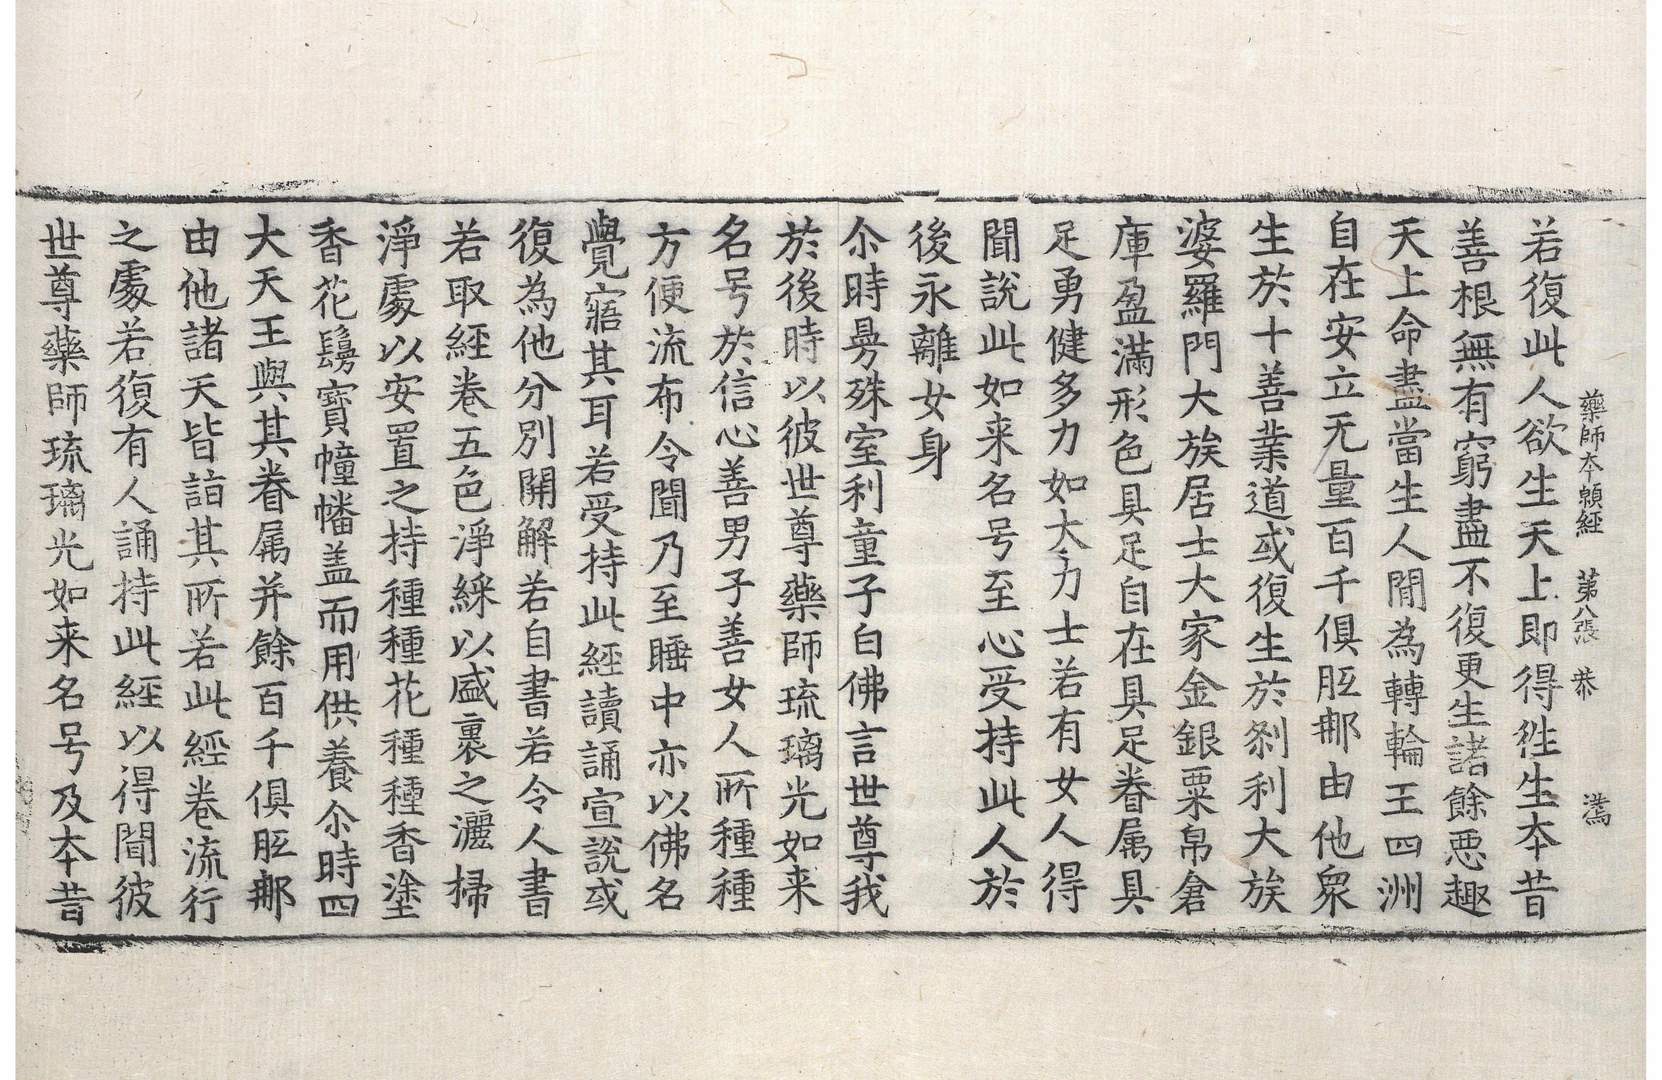 藥師夲願經 第八張 恭
若復此人欲生天上即得徃生夲昔
善根無有窮盡不復更生諸餘悪趣
天上命盡當生人閒為轉輪王四洲
自在安立无量百千俱胝𨚗由他衆
生於十善業道或復生於刹利大族
婆羅門大族居士大家金銀粟帛倉
庫盈滿形色具足自在具足眷属具
足勇健多力如大力士若有女人得
聞說此如来名号至心受持此人於
後永離女身
尒時曼殊室利童子白佛言世尊我
於後時以彼世尊藥師琉璃光如来
名号於信心善男子善女人所種種
方便流布令聞乃至睡中亦以佛名
覺寤其耳若受持此經讀誦宣說或
復為他分別開解若自書若令人書
若取經卷五色淨綵以盛裹之灑掃
淨處以安置之持種種花種種香塗
香花鬘寶幢幡盖而用供養尒時四
大天王與其眷属并餘百千俱胝𨚗
由他諸天皆詣其所若此經卷流行
之處若復有人誦持此經以得聞彼
世尊藥師琉璃光如来名号及夲昔